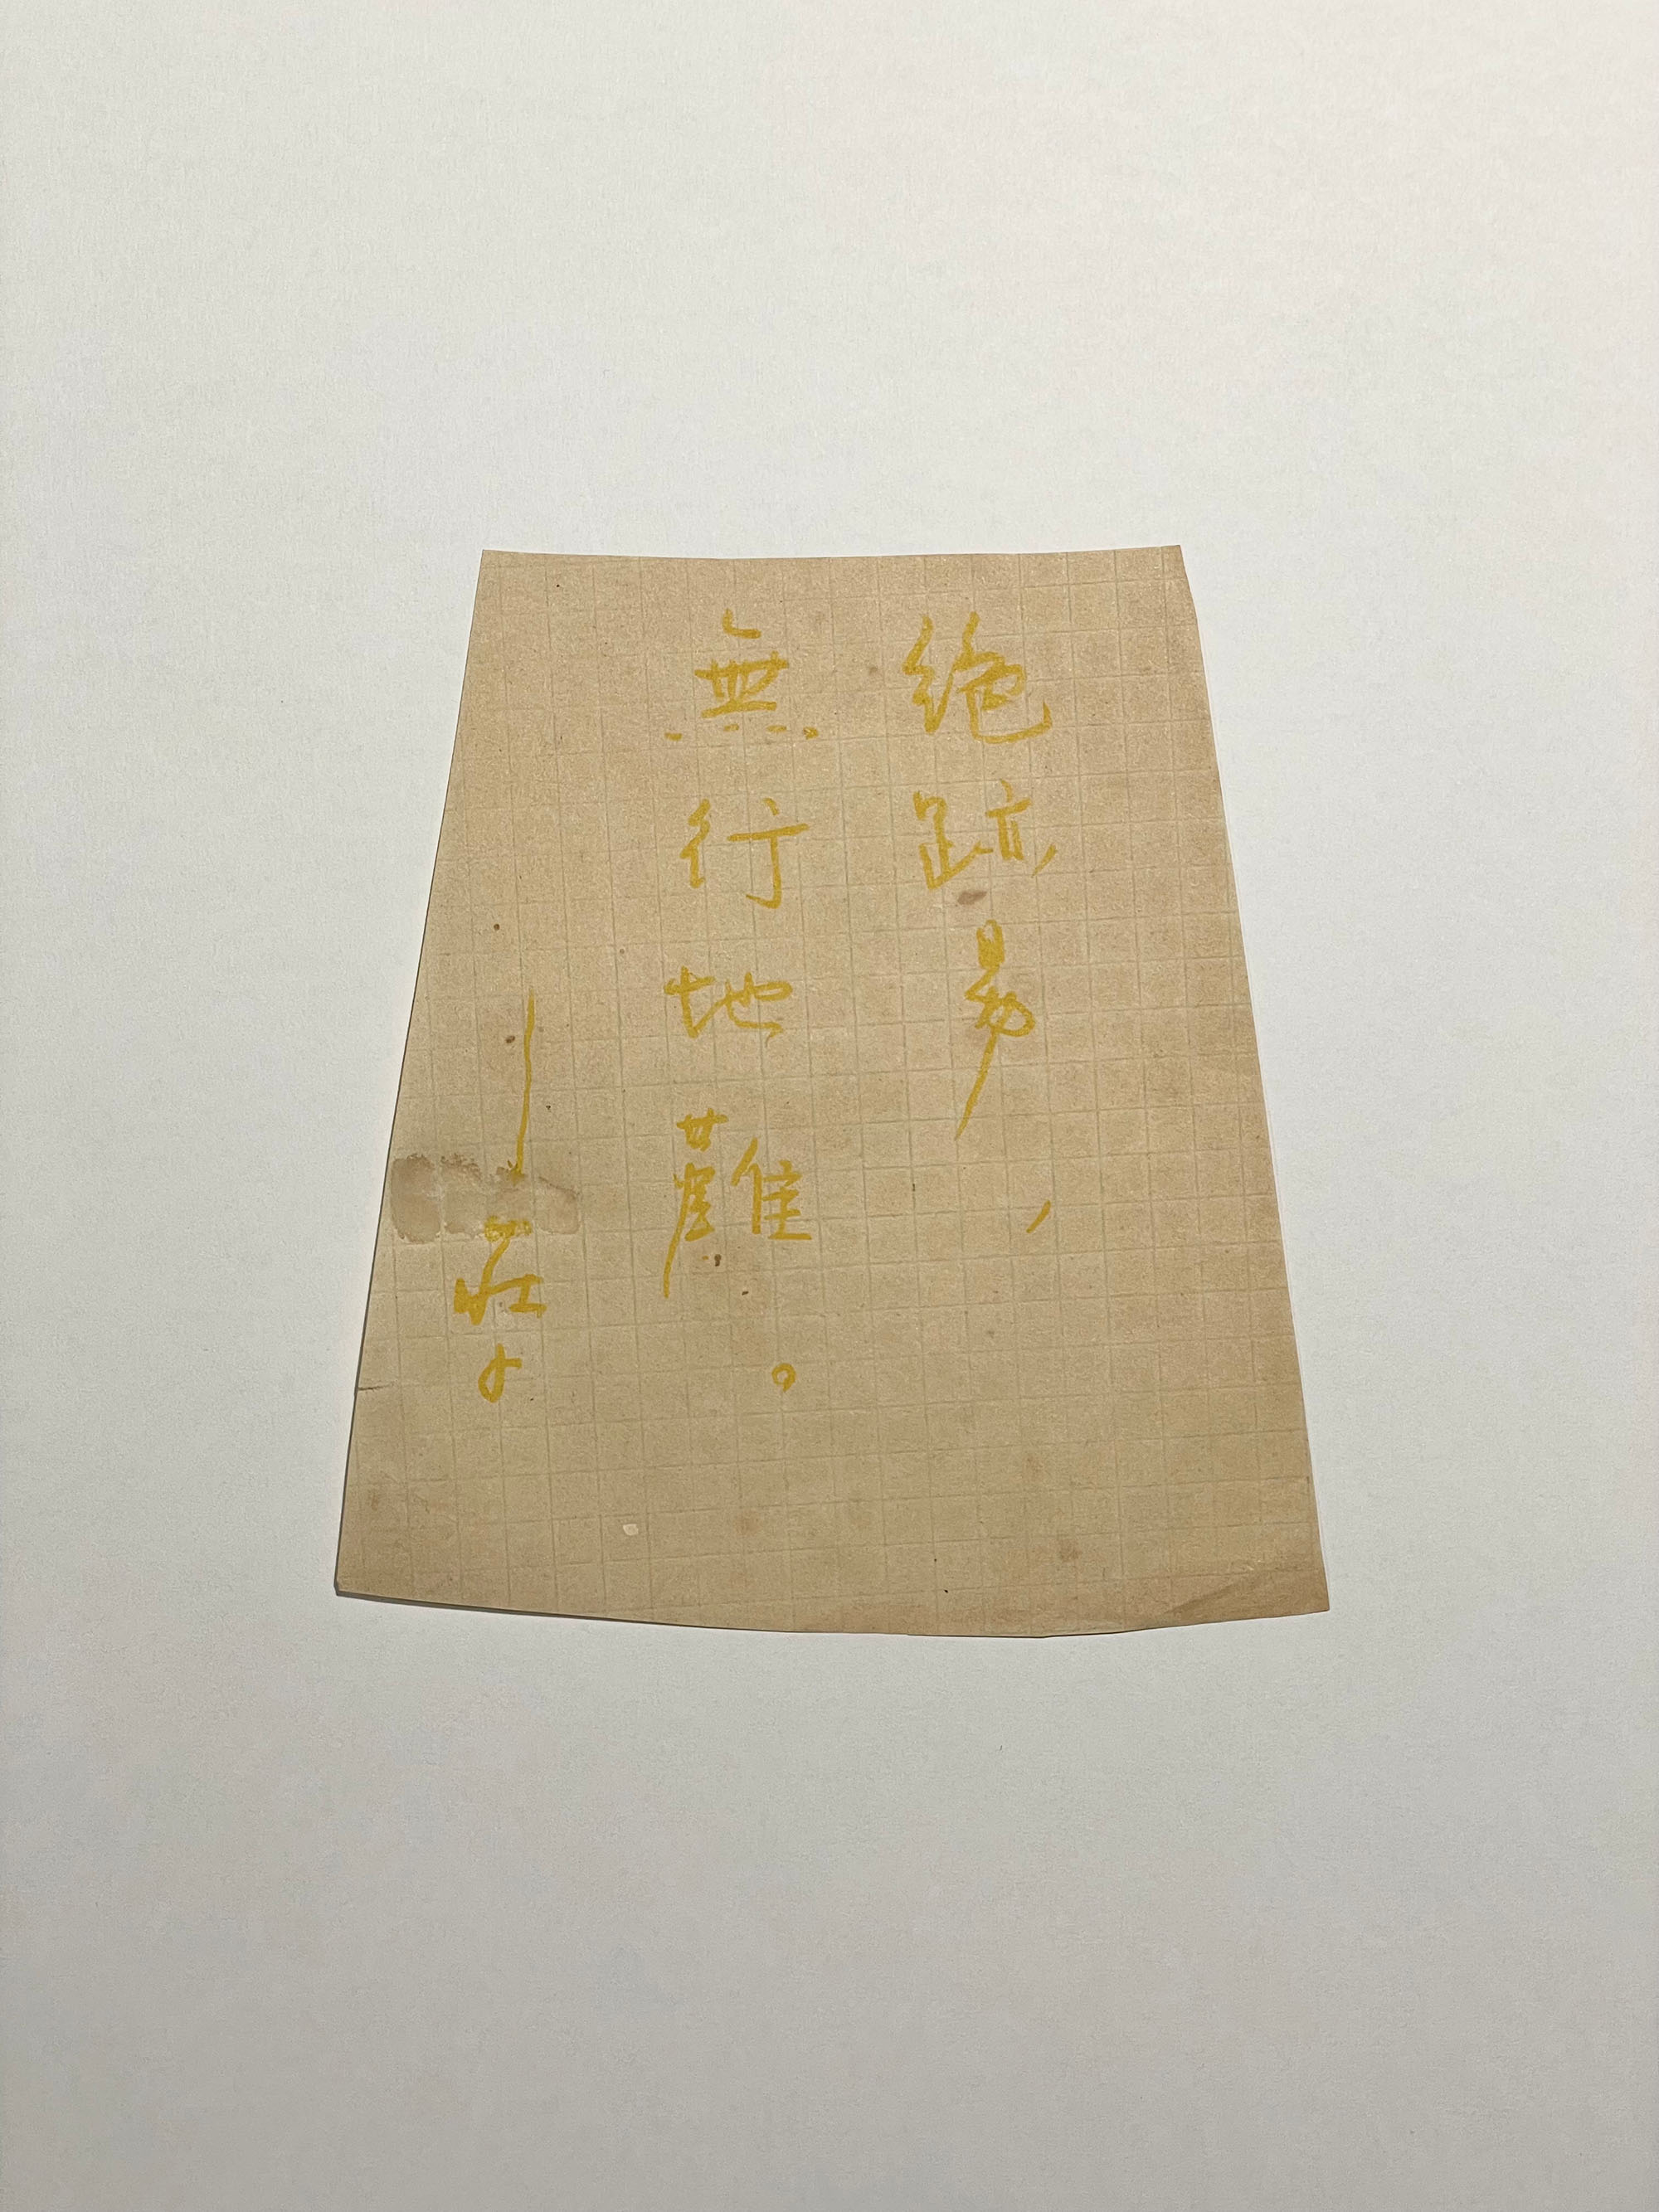 絶跡易，
無行地難。
—莊子